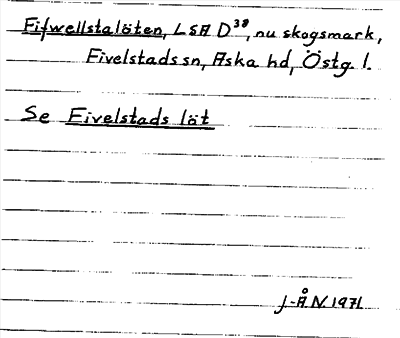 Fifwellstalöten, LSA D38, nu skogsmark,
Fivelstads sn, Aska hd, Östg. l.
Se Fivelstads löt
J-ÅN 1971